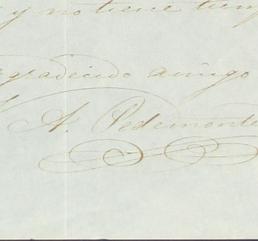 y no tiene
agradecido amigo
A. Pedemonte